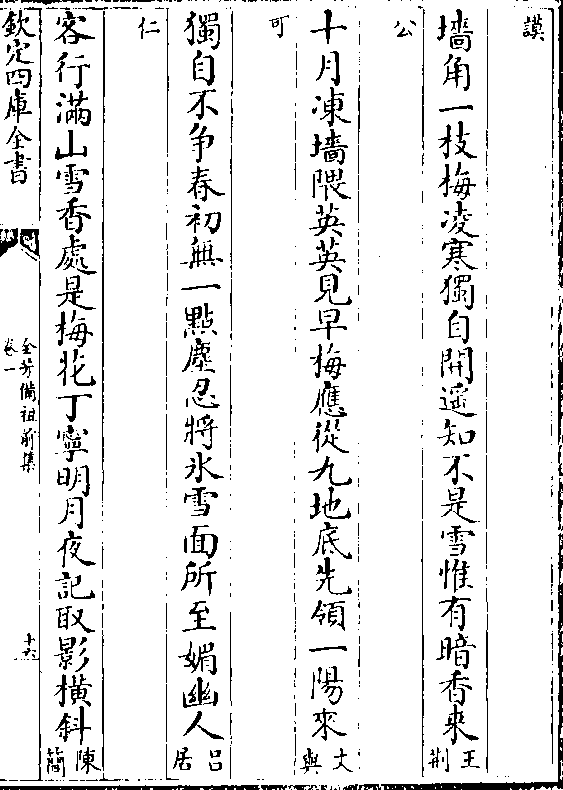 謨
墻角一枝梅凌寒獨自開遥知不是雪惟有暗香来王荆
公
十月凍墻隈英英見早梅應從九地底先領一陽來文與
可
獨自不争春初無一點塵忍將氷雪面所至媚幽人吕居
仁
客行滿山雪香處是梅花丁寧明月夜記取影横斜陳簡
欽定四庫全書
全芳備祖前集
卷一
十六